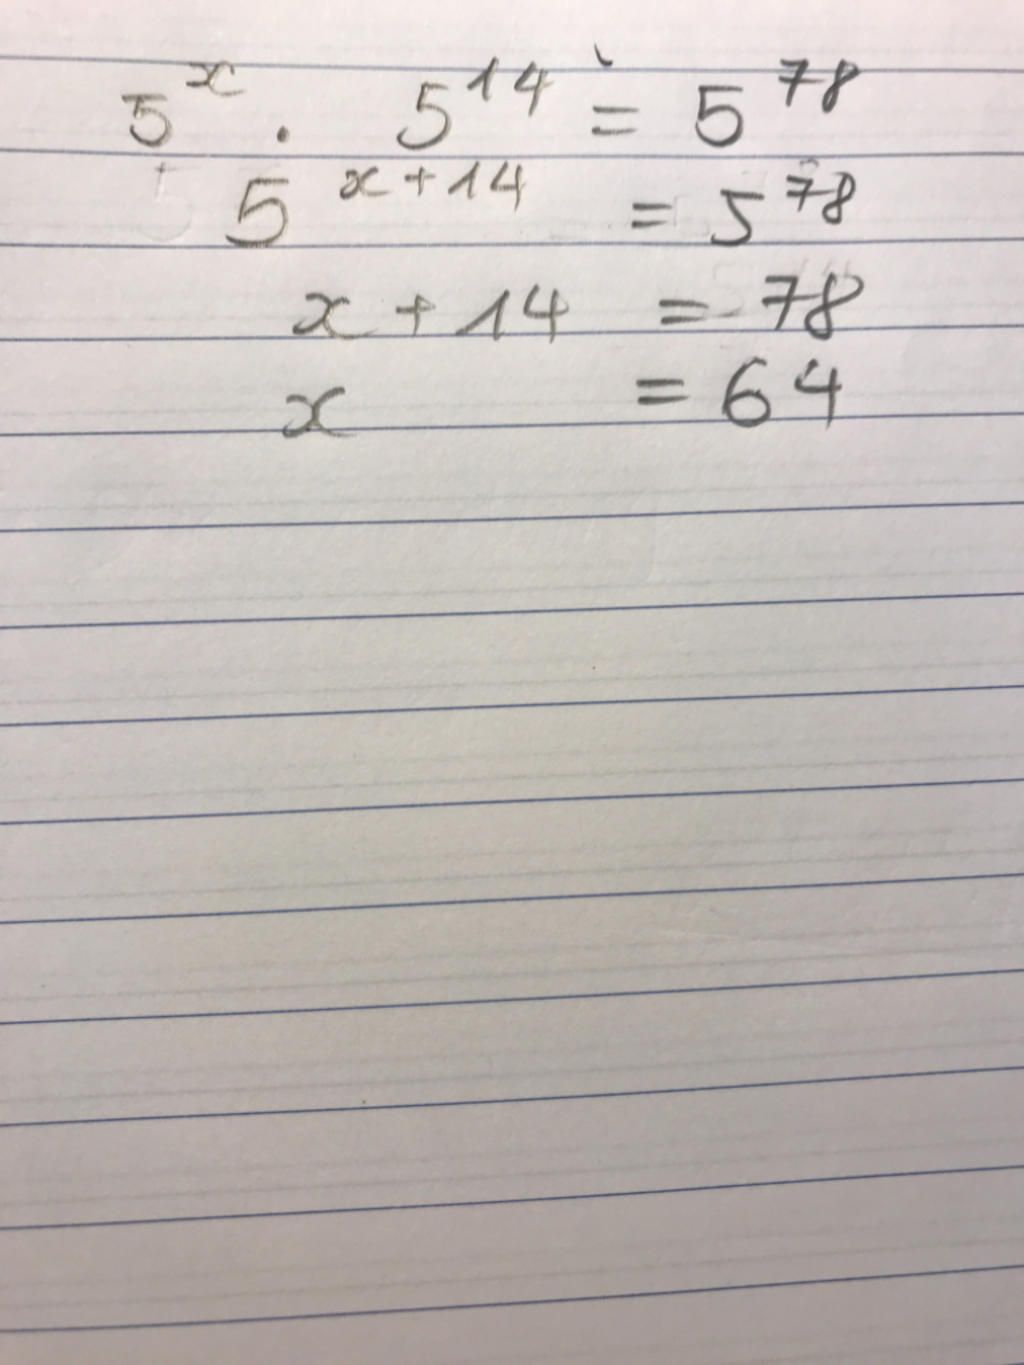 5^x · 5^14 = 5^78
5^x+14 = 5^78
x + 14 = 78
x = 64